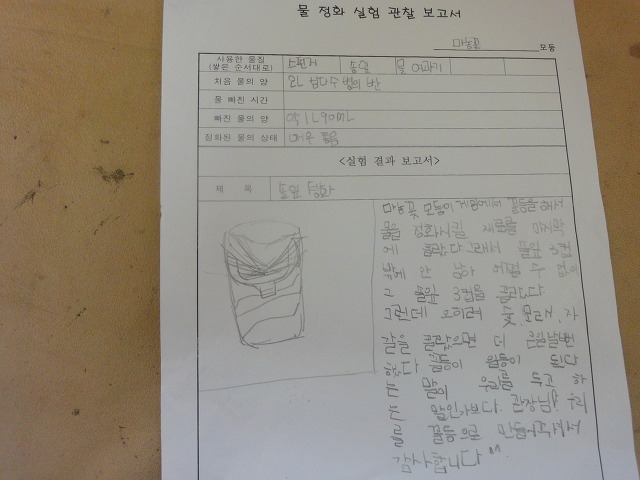 물 정화 실험 관찰 보고서
마늘꽃 모둠
사용한 물질 스펀지 솔잎 물 여과기
(쌓은 순서대로)
처음 물의 양 2L 삼다수 병의 반
물 빠진 시간
빠진 물의 양 약 1L 90mL
정화된 물의 상태 매우 더러움
<실험 결과 보고서>
제 목 솔잎 정화
마늘꽃 모둠이 게임에서 꼴등을 해서
물을 정화시킬 재료를 마지막
에 골랐다 그래서 솔잎 3컵
밖에 안 남아 어쩔 수 없이
그 솔잎 3컵을 골랐다
그런데 오히려 숯, 모래, 자
갈을 골랐으면 더 큰일날뻔
했다 꼴등이 일등이 된다
는 말이 우리를 두고 하
는 말인가보다. 관장님! 우리
를 꼴등으로 만들어주셔서
감사합니다 ^^